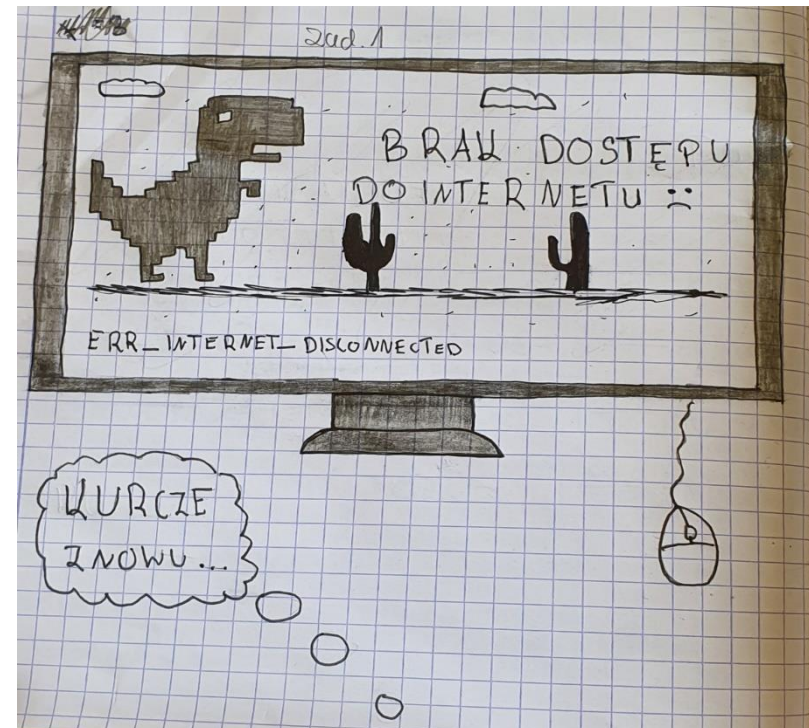 Zad. 1
BRAK DOSTĘPU
DO INTERNETU :(
ERR_INTERNET_DISCONNECTED
KURCZE
ZNOWU...